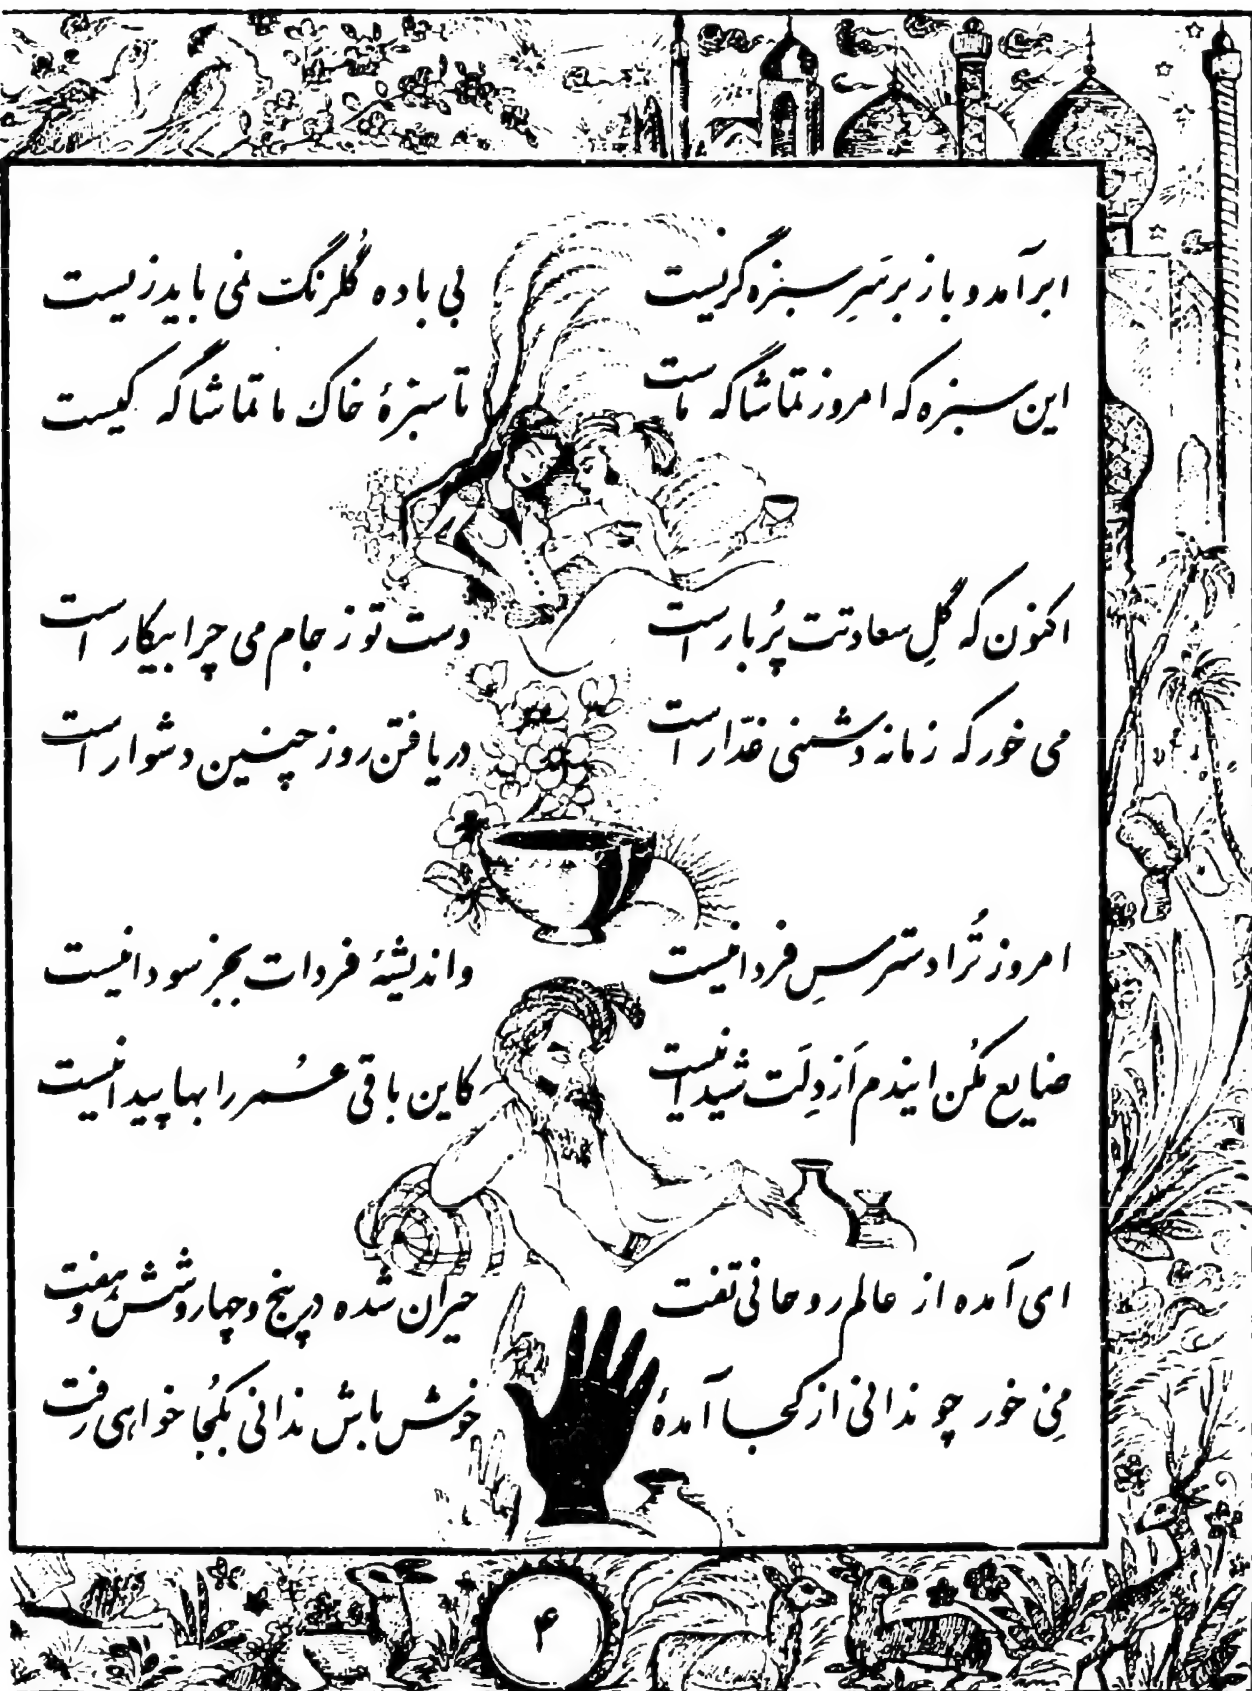 ابر آمد و باز بر سَرِ سبزه گریست بی باده گُلرنگ نمی باید زیست
این سبزه که امروز تماشاگه ماست تا سبزهٔ خاک ما تماشاگه کیست
اکنون که گلِ سعادتت پُربار است دست تو ز جام می چرا بیکار است
می خور که زمانه دشمنی غدّار است دریافتن روز چنین دشوار است
امروز تُرا دسترسِ فردا نیست و اندیشهٔ فردات بجز سودا نیست
ضایع مکُن ایندم اَر دِلَت شیدا نیست کاین باقی عُمر را بها پیدا نیست
ای آمده از عالم روحانی تفت حیران شده در پنج و چهار و شش و هفت
مِی خور چو ندانی از کجا آمدهٔ خوش باش ندانی بکُجا خواهی رفت
۴